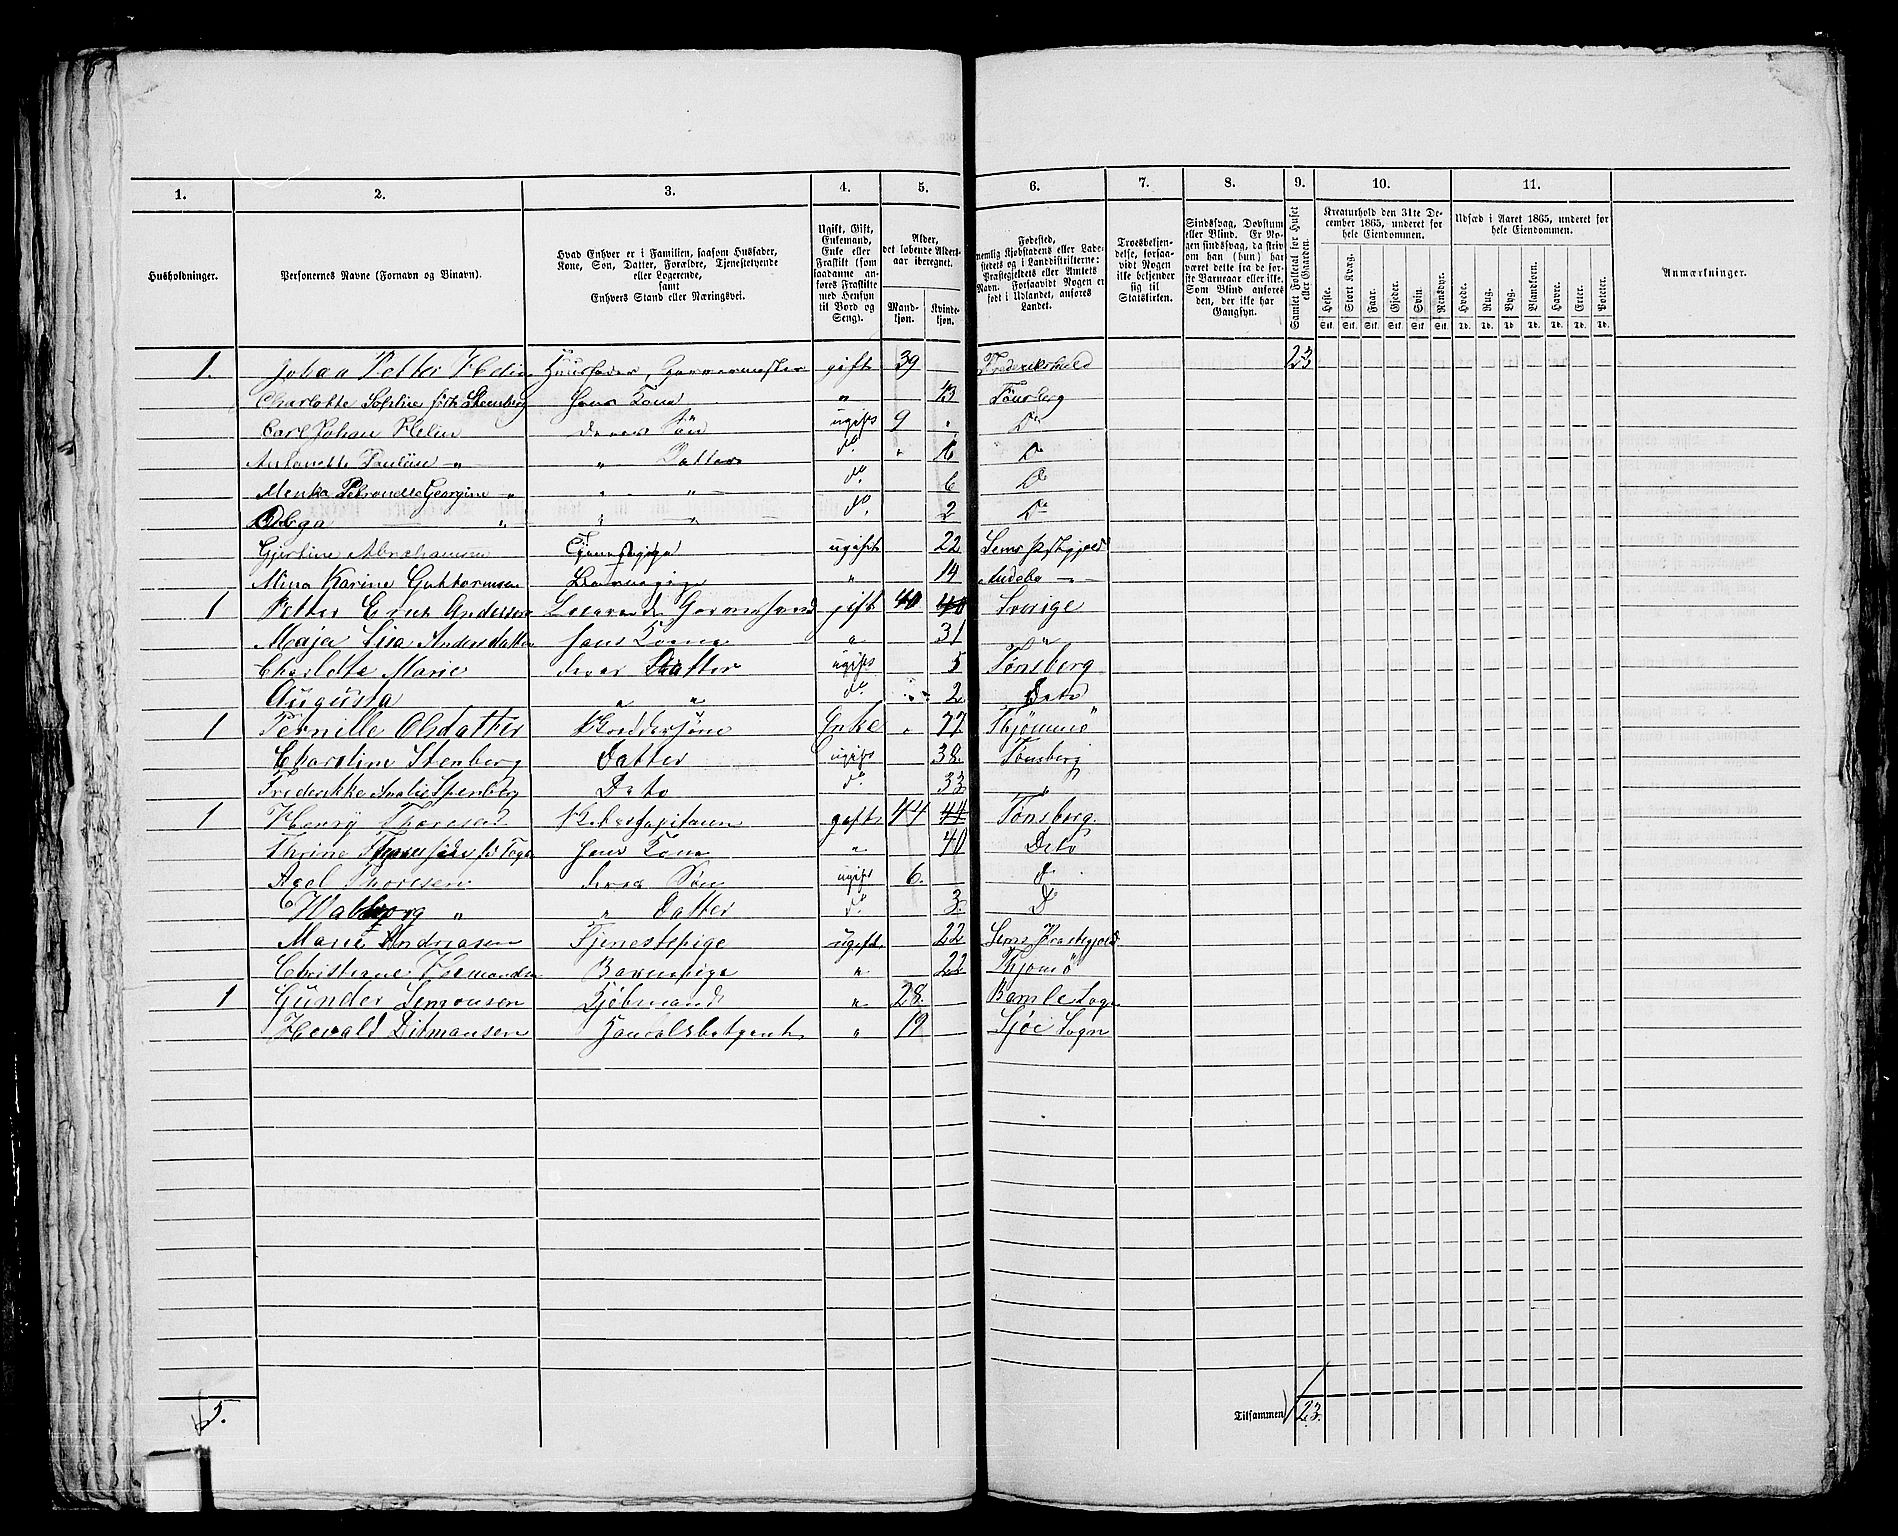 1. 2. 3. 4. 5. 6. 7. 8. 9. 10. 11.
Husholdninger.
Personernes Navne (Fornavn og Binavn).
Hvad Enhver er i Familien, saasom Husfader,
Kone, Søn, Datter, Forældre, Tjenestetyende
eller Logerende,
samt
Enhvers Stand eller Næringsvei.
Ugift, Gift,
Enkemand,
Enke eller
Fraskilt (som
saadanne an-
føres Fraskilte
med Hensyn
til Bord og
Seng).
Alder,
det løbende Alders-
aar iberegnet.
Mand-
kjøn.
Kvinde-
kjøn.
Fødested,
nemlig Kjøbstadens eller Lade-
stedets og i Landdistrikterne:
Præstegjeldets eller Amtets
Navn. Forsaavidt Nogen er
født i Udlandet, anføres
Landet.
Troesbekjen-
delse, forsaa-
vidt Nogen
ikke bekjender
sig til
Statskirken.
Sindssvag, Døvstum
eller Blind. Er No-
gen sindssvag, da skriv
om han (hun) har
været dette fra de før-
ste Barneaar eller ikke.
Som Blind anføres
den, der ikke har
Gangsyn.
Samlet Folketal for Huset
eller Gaarden.
Kreaturhold den 31te De-
cember 1865, underet for
hele Eiendommen.
Heste. Stort Kvæg. Faar. Gjeder. Svin. Rensdyr.
Stk. Stk. Stk. Stk. Stk. Stk.
Udsæd i Aaret 1865, underet for
hele Eiendommen.
Hvede. Rug. Byg. Blandkorn. Havre. Erter. Poteter.
Td. Td. Td. Td. Td. Td. Td.
Anmærkninger.
1. Johan Petter Helin Huusfader, Garvermester gift 39 Frederikshald 23
Charlotte Sophie født Steenberg Hans Kone " 43 Tönsberg
Carl Johan Helin deres Søn ugift 9 " Do
Antonette Pauline " " Datter do. " 16 Do
Menka Petronelle Georgine " " " do. 6 Do
Olga " " " do. 2 Do
Gjertine Abrahamsen Tjenestepige ugift 22 Sems Prstgjeld
Mina Karine Guttormsen Barnepige " 14 Andebo "
1 Petter Andersen Logerende Garversvend gift 40 40 Sverige
Maja Lisa Andersdatter hans Kone " 31 "
Charlotte Marie deres Datter ugift 5 Tönsberg
Augusta " " do 2 Deto
1 Pernille Olsdatter Enke " 77 Thjømmö
Charoline Stenberg Datter ugift 38. Tönsberg
Frederikke Amalie Stenberg Deto do 33 "
1 Henry Thoresen Skibscapitaien gift 44 44 Tönsberg.
Thrine hans Kone " 40 Deto
Axel Thoresen deres Søn ugift 6. D
Walborg " " Datter do. 3. D
Marie Andreasen Tjenestepige ugift 22 Sems Præstegjeld
Christiane Barnepige " 22 Thjomö
1 Günder Simonsen Kjöbmand " 28. Bamle Sogn
Hervald Ditmansen Handelsbetjent " 19 Sogn
5.
Tilsammen 23.